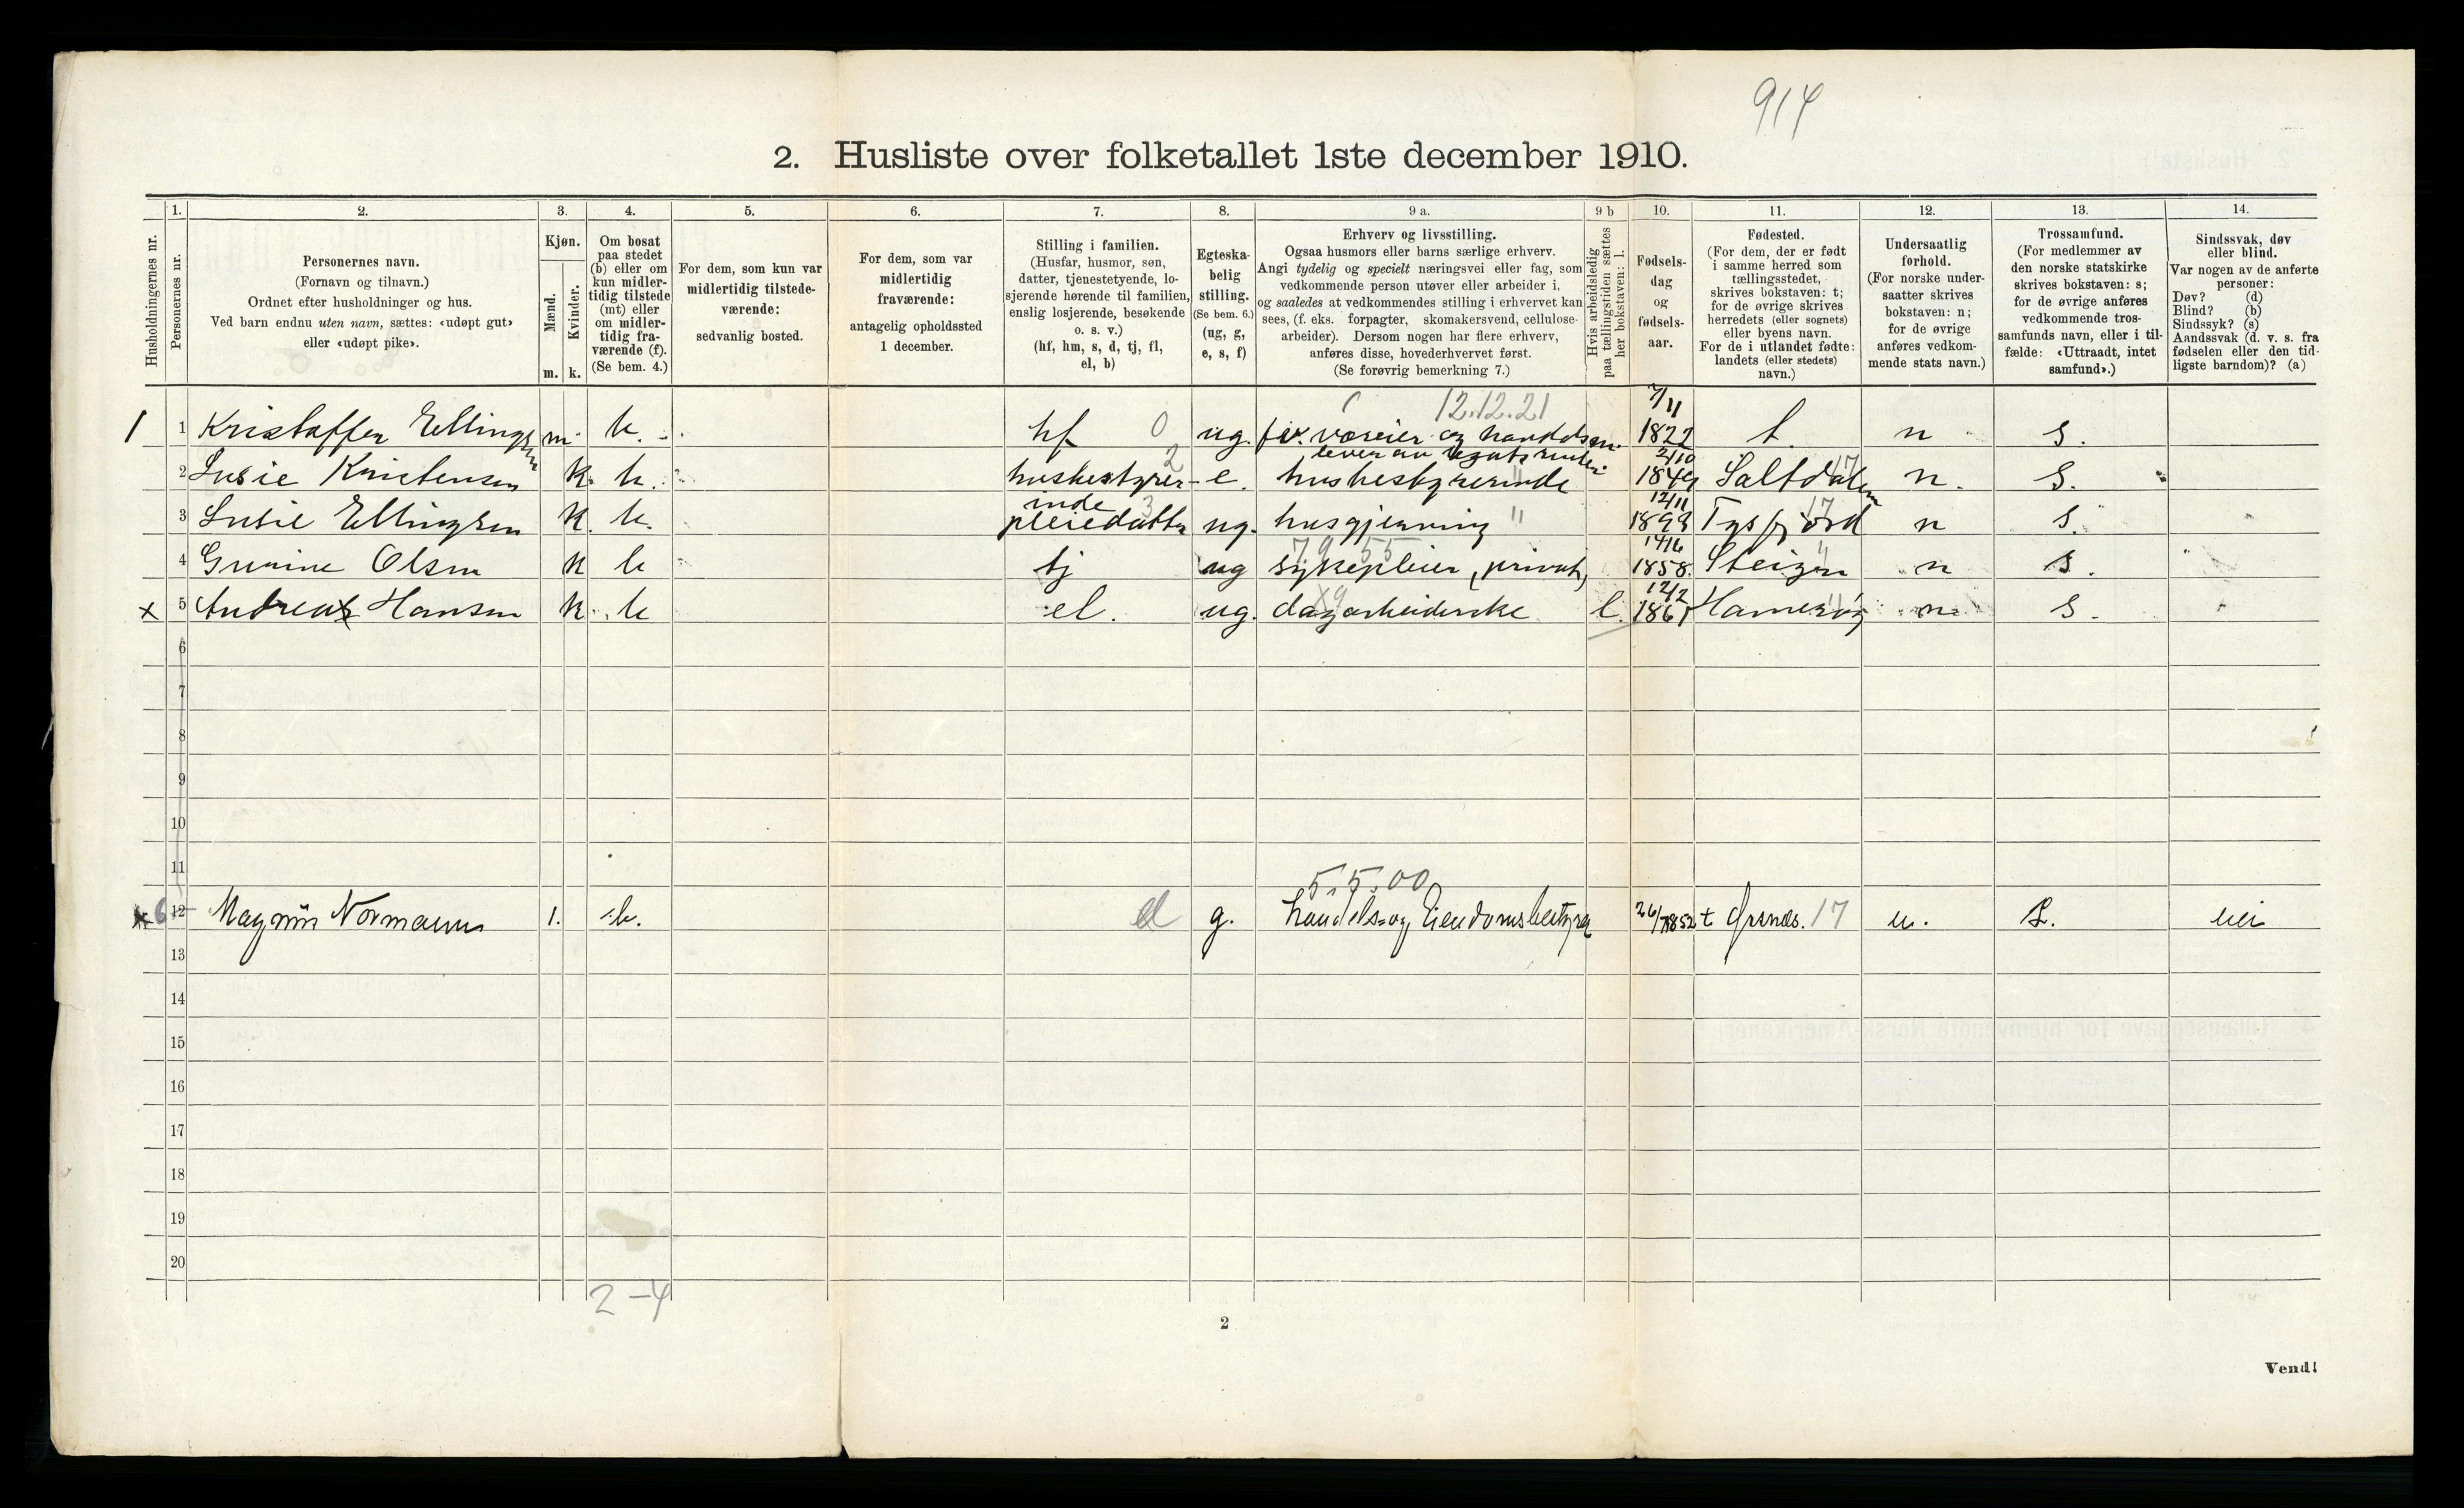 914
2. Husliste over folketallet 1ste december 1910.
Husholdningernes nr.
1.
Personernes nr.
2.
Personernes navn.
(Fornavn og tilnavn.)
Ordnet efter husholdninger og hus.
Ved barn endnu uten navn, sættes: «udøpt gut»
eller «udøpt pike».
3.
Kjøn.
Mænd.
Kvinder.
m. k.
4.
Om bosat
paa stedet
(b) eller om
kun midler-
tidig tilstede
(mt) eller
om midler-
tidig fra-
værende (f).
(Se bem. 4.)
5.
For dem, som kun var
midlertidig tilstede-
værende:
sedvanlig bosted.
6.
For dem, som var
midlertidig
fraværende:
antagelig opholdssted
1 december.
7.
Stilling i familien.
(Husfar, husmor, søn,
datter, tjenestetyende, lo-
sjerende hørende til familien,
enslig losjerende, besøkende
o. s. v.)
(hf, hm, s, d, tj, fl,
el, b)
8.
Egteska-
belig
stilling.
(Se bem. 6.)
(ug, g,
e, s, f)
9 a.
Erhverv og livsstilling.
Ogsaa husmors eller barns særlige erhverv.
Angi tydelig og specielt næringsvei eller fag, som
vedkommende person utøver eller arbeider i,
og saaledes at vedkommendes stilling i erhvervet kan
sees, (f. eks. forpagter, skomakersvend, cellulose-
arbeider). Dersom nogen har flere erhverv,
anføres disse, hovederhvervet først.
(Se forøvrig bemerkning 7.)
9 b
Hvis arbeidsledig
paa tællingstiden sættes
her bokstaven: l.
10.
Fødsels-
dag
og
fødsels-
aar.
11.
Fødested.
(For dem, der er født
i samme herred som
tællingsstedet,
skrives bokstaven: t;
for de øvrige skrives
herredets (eller sognets)
eller byens navn.
For de i utlandet fødte:
landets (eller stedets)
navn.)
12.
Undersaatlig
forhold.
(For norske under-
saatter skrives
bokstaven: n;
for de øvrige
anføres vedkom-
mende stats navn.)
13.
Trossamfund.
(For medlemmer av
den norske statskirke
skrives bokstaven: s;
for de øvrige anføres
vedkommende tros-
samfunds navn, eller i til-
fælde: «Uttraadt, intet
samfund».)
14.
Sindssvak, døv
eller blind.
Var nogen av de anførte
personer:
Døv? (d)
Blind? (b)
Sindssyk? (s)
Aandssvak (d. v. s. fra
fødselen eller den tid-
ligste barndom)? (a)
12.12.21 7/11
1 1 Kristoffer Ellingsen m. b. hf 0 ug. fv. væreier og handelsm. 1822 t. n s.
lever av legatsrenter 2/10
2 Lusie Kristensen k. b. husbestyrer- 2 e. husbestyrerinde " 1849 Saltdalen 17 n. s.
inde 12/11
3 Lusie Ellingsen k. b. pleiedatter 3 ug. husgjerning " 1898 Tysfjord 17 n s.
79 55 14/6
4 Gunine Olsen k b tj ug sykepleier (privat) 1858. Steigen " n s.
12/2
x 5 Andrea Hansen k. b el. ug. dagarbeiderske X9 l. 1861 Hamerøy " n. s.
6
7
8
9
10
11
5.5.00
x 6 12 Magnus Normann 1. b. el g. handels- og Eiendomsbestyrer 26/7 1852 t Grsnæs. 17 n. S. nei
13
14
15
16
17
18
19
20
2 – 4
2
Vend!